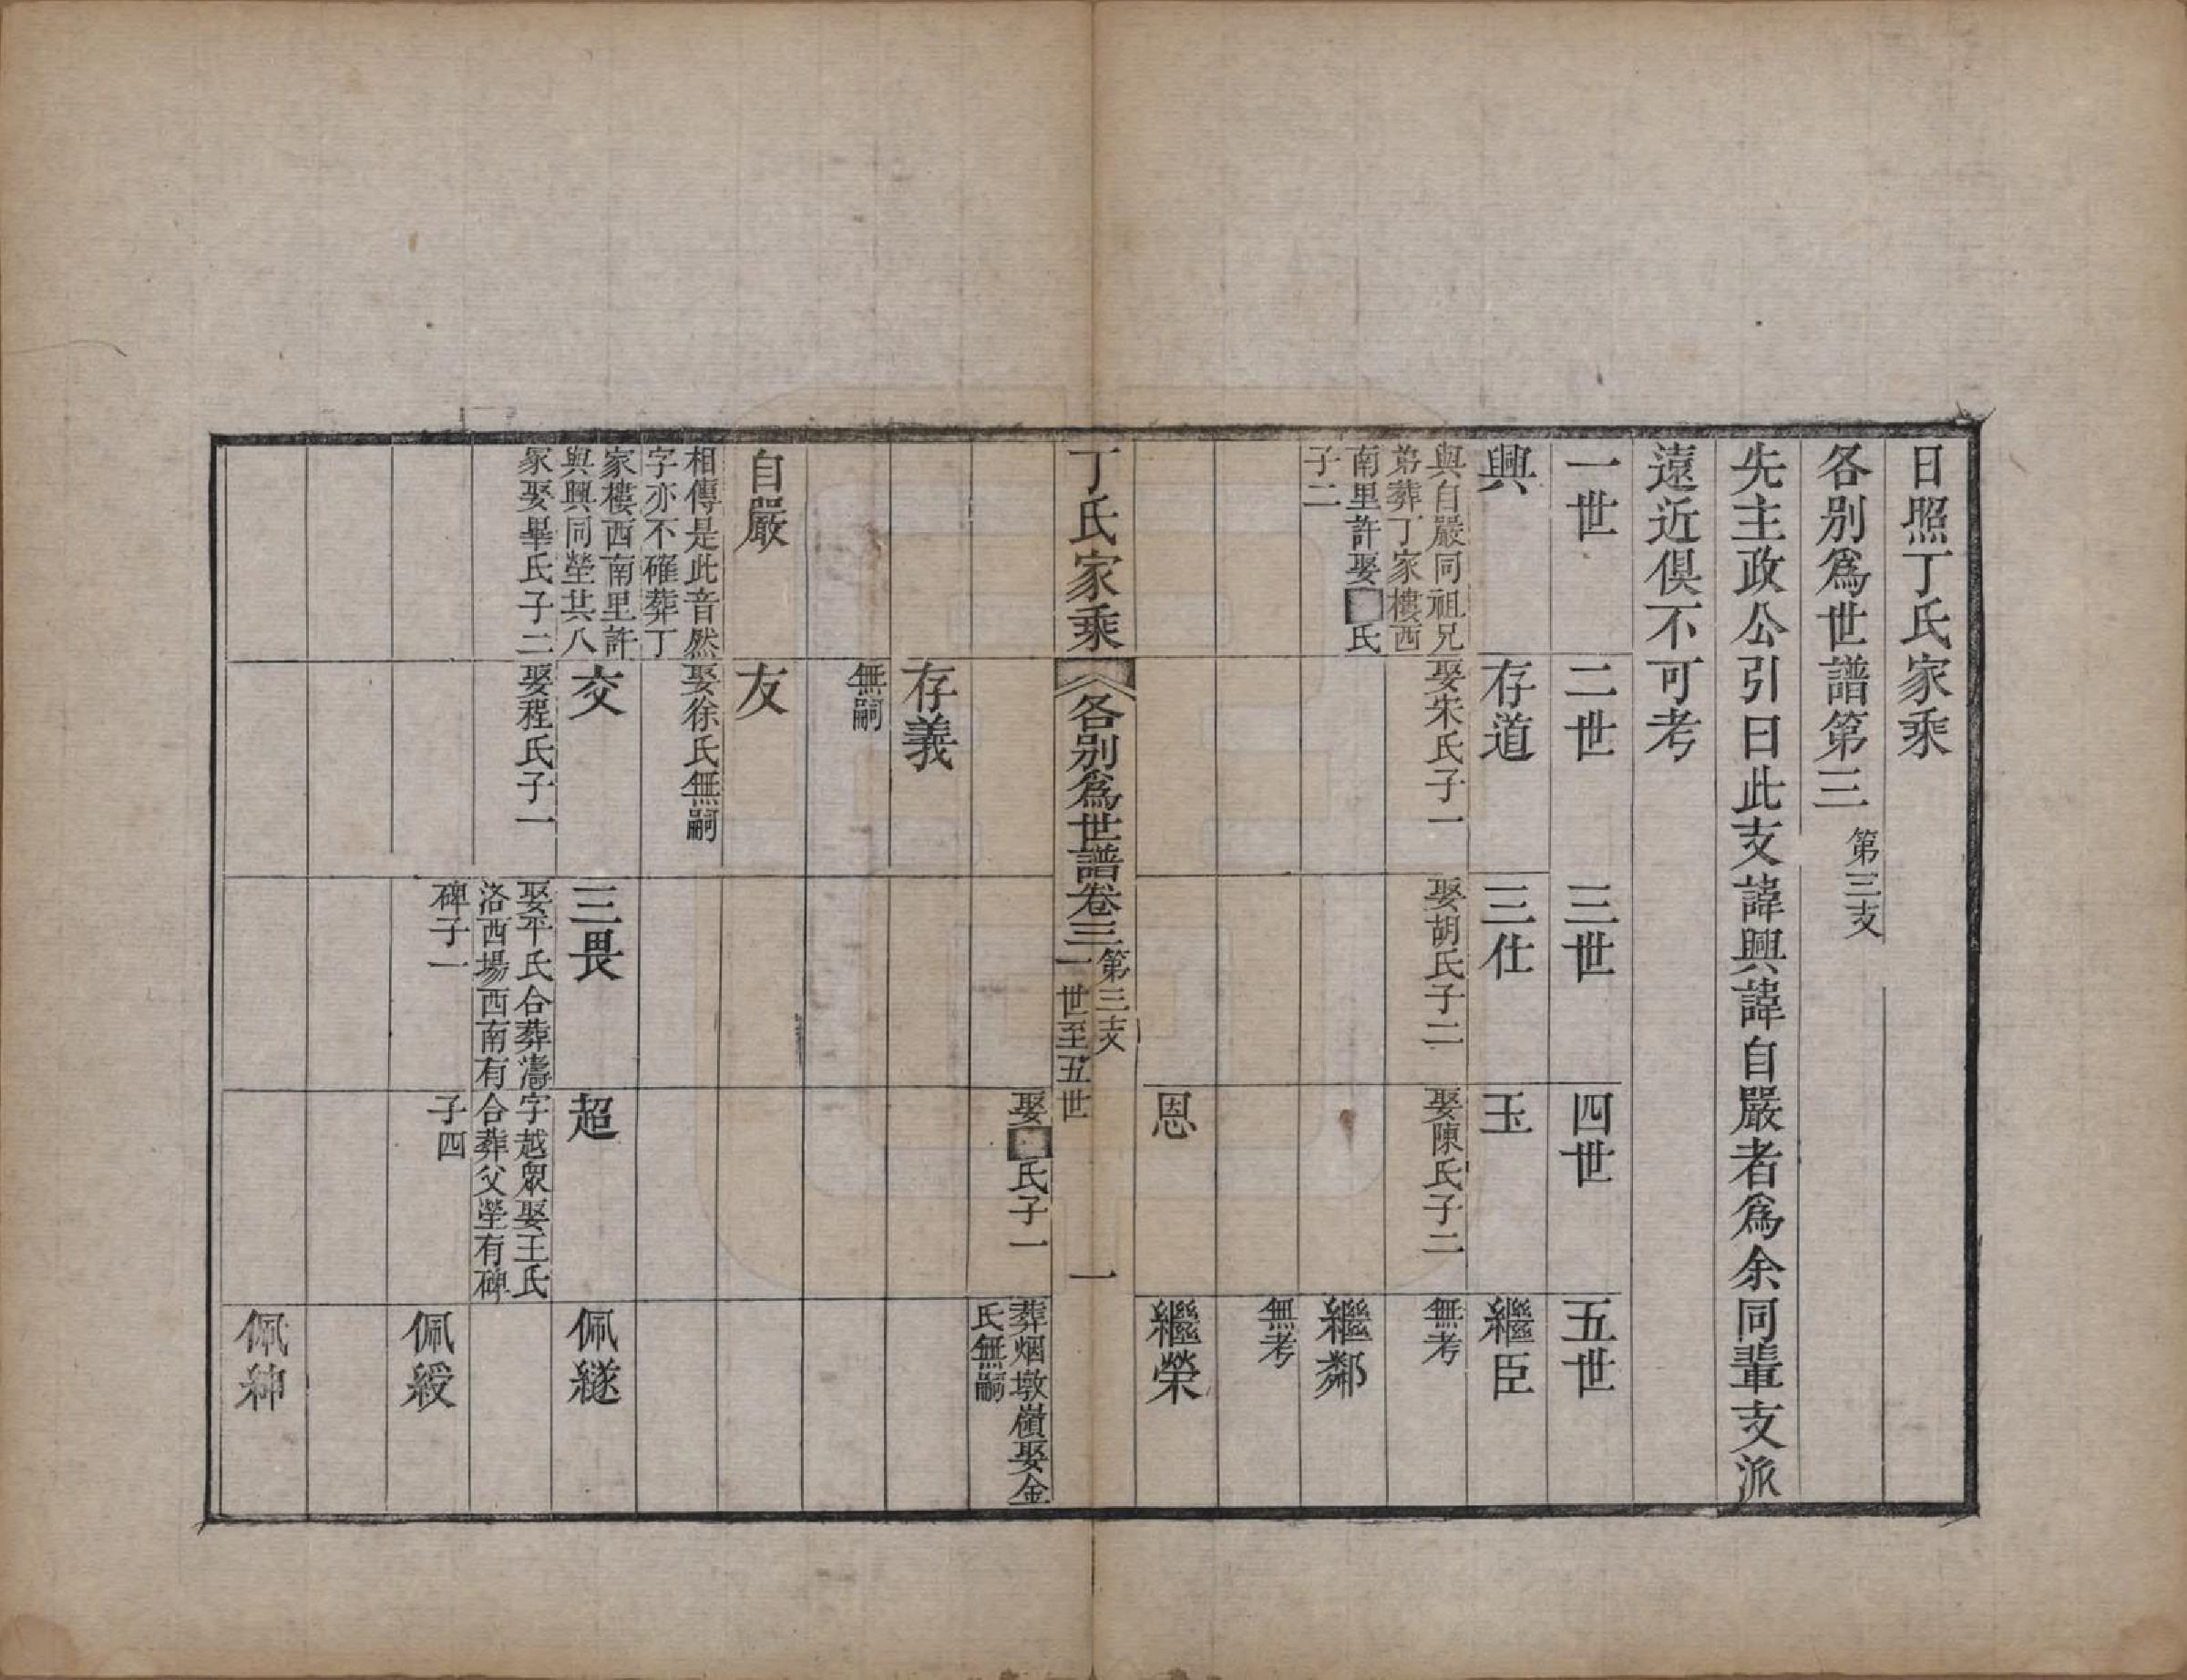 日照丁氏家乘
各別爲世譜第三 第三支
先主政公引曰此支諱興諱自嚴者爲余同輩支派
遠近俱不可考
一世
二世
三世
四世
五世
興
存道
三仕
玉
繼臣
與自嚴同祖兄
弟葬丁家樓西
南里許娶氏
子二
娶朱氏子一
娶胡氏子二
娶陳氏子二
無考
繼鄰
無考
恩
繼榮
丁氏家乘
各別爲世譜卷三
第三支
一世至五世
一
娶氏子一
葬烟墩嶺娶金
氏無嗣
存義
無嗣
自嚴
友
相傳是此音然
字亦不確葬丁
家樓西南里許
與興同塋其八
冢娶畢氏子二
娶徐氏無嗣
交
三畏
超
佩繸
娶程氏子一
娶平氏合葬濤
洛西場西南有
碑子一
字越眾娶王氏
合葬父塋有碑
子四
佩綬
佩紳